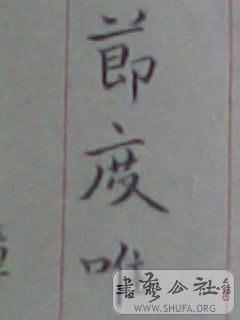 節度唯
書藝公社
WWW.SHUFA.ORG